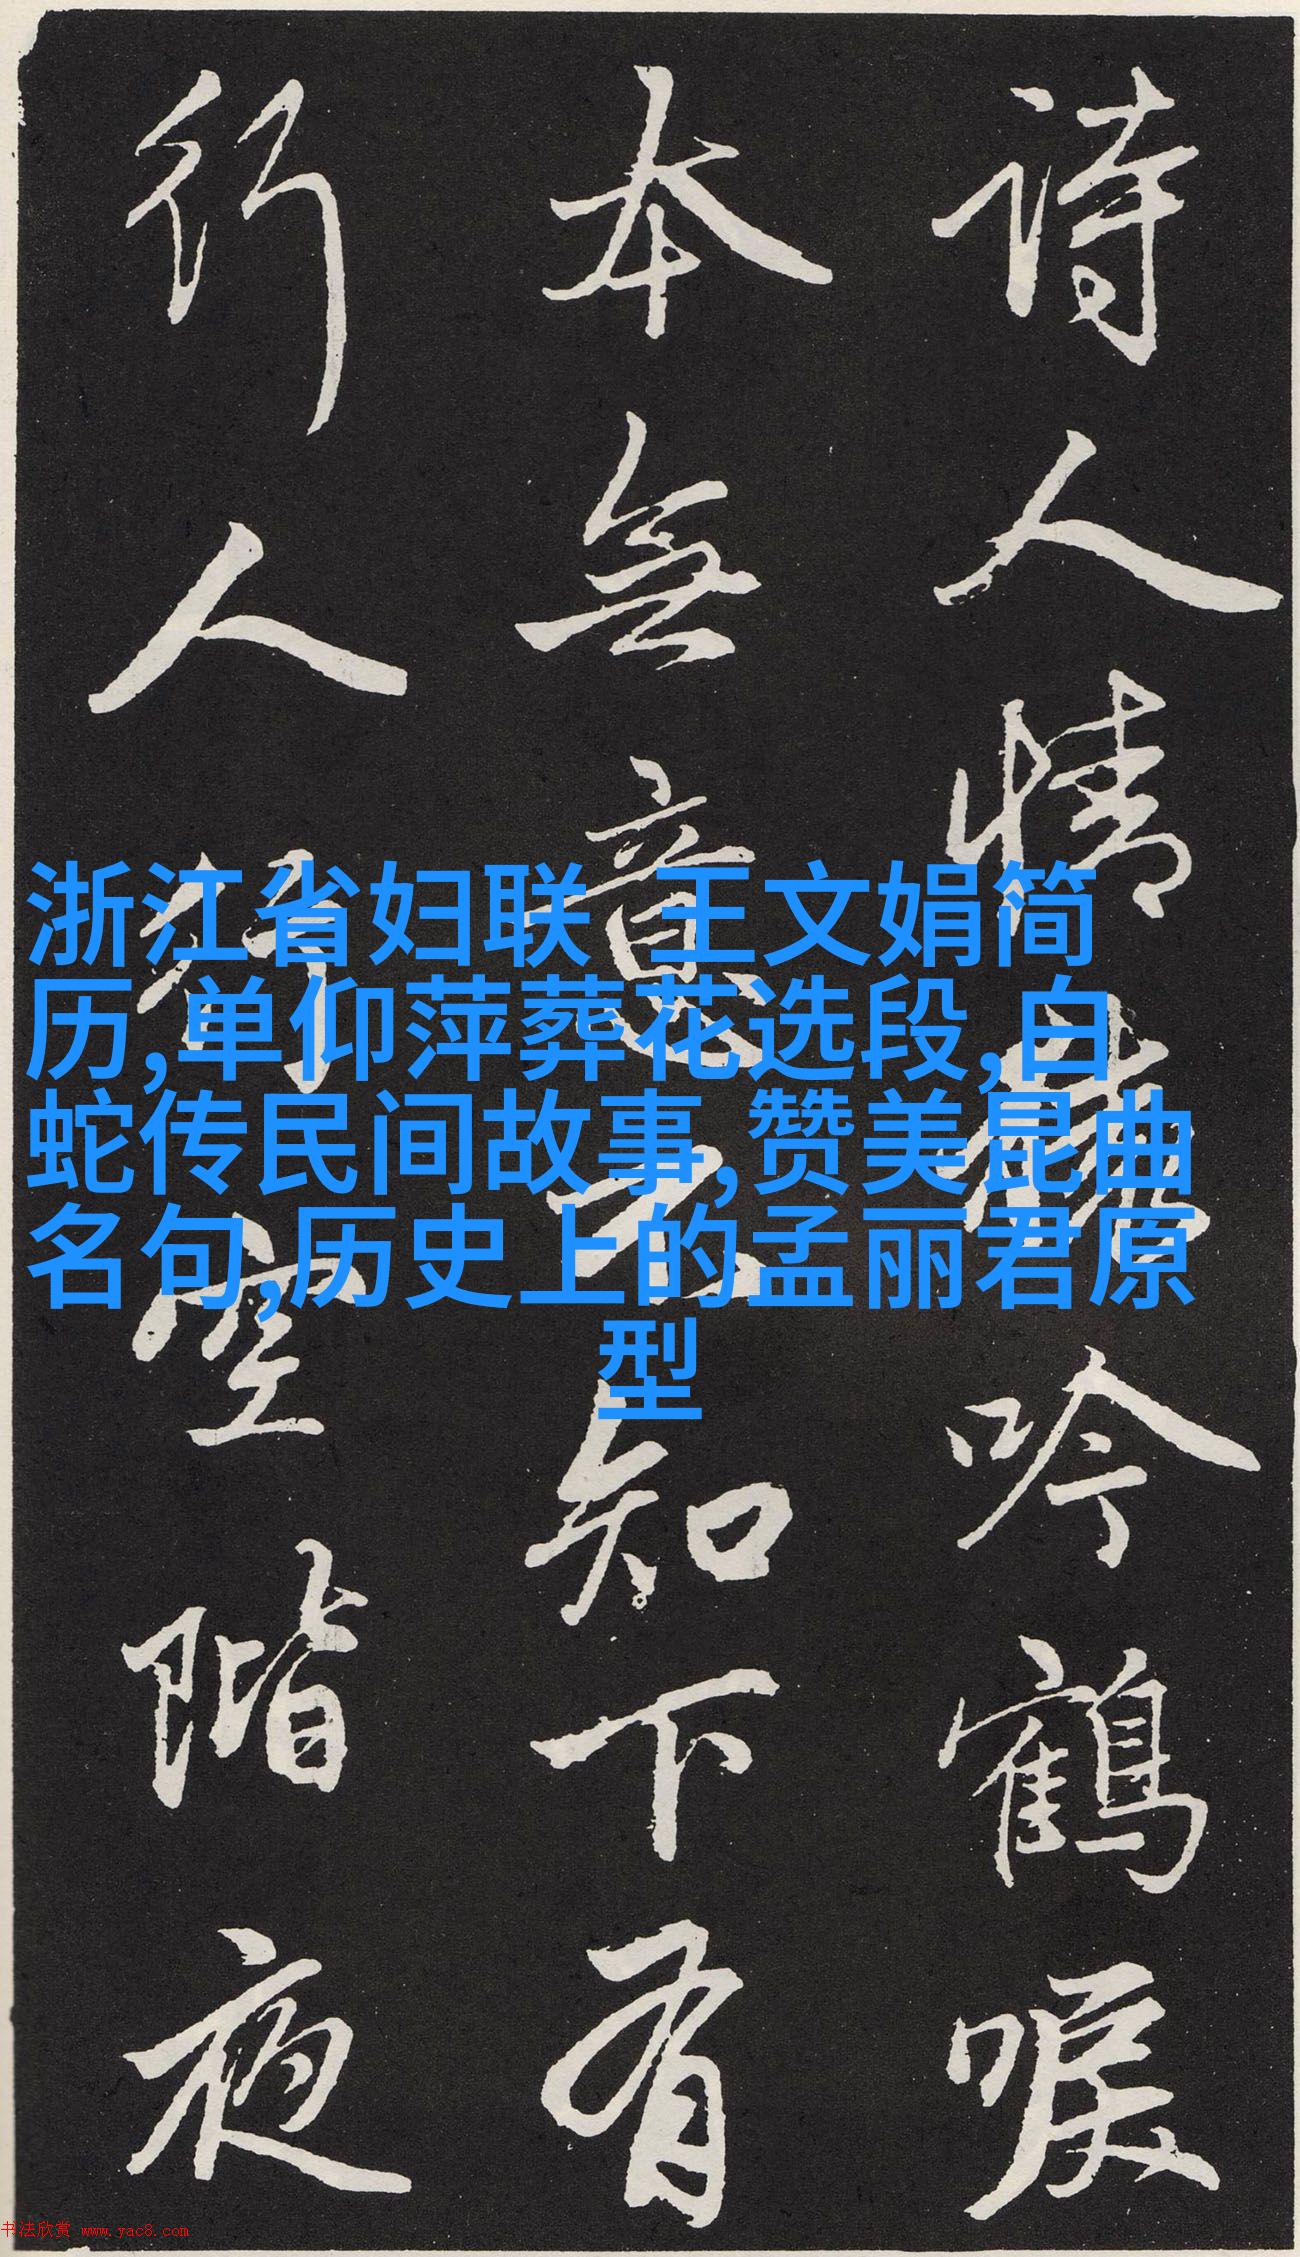 詩人情吟鶴唳
本無意知下有
行人空階夜
浙江省妇联 王文娟简
历,单仰萍葬花选段,白
蛇传民间故事,赞美昆曲
名句,历史上的孟丽君原
型
书法欣赏 www.yac8.com